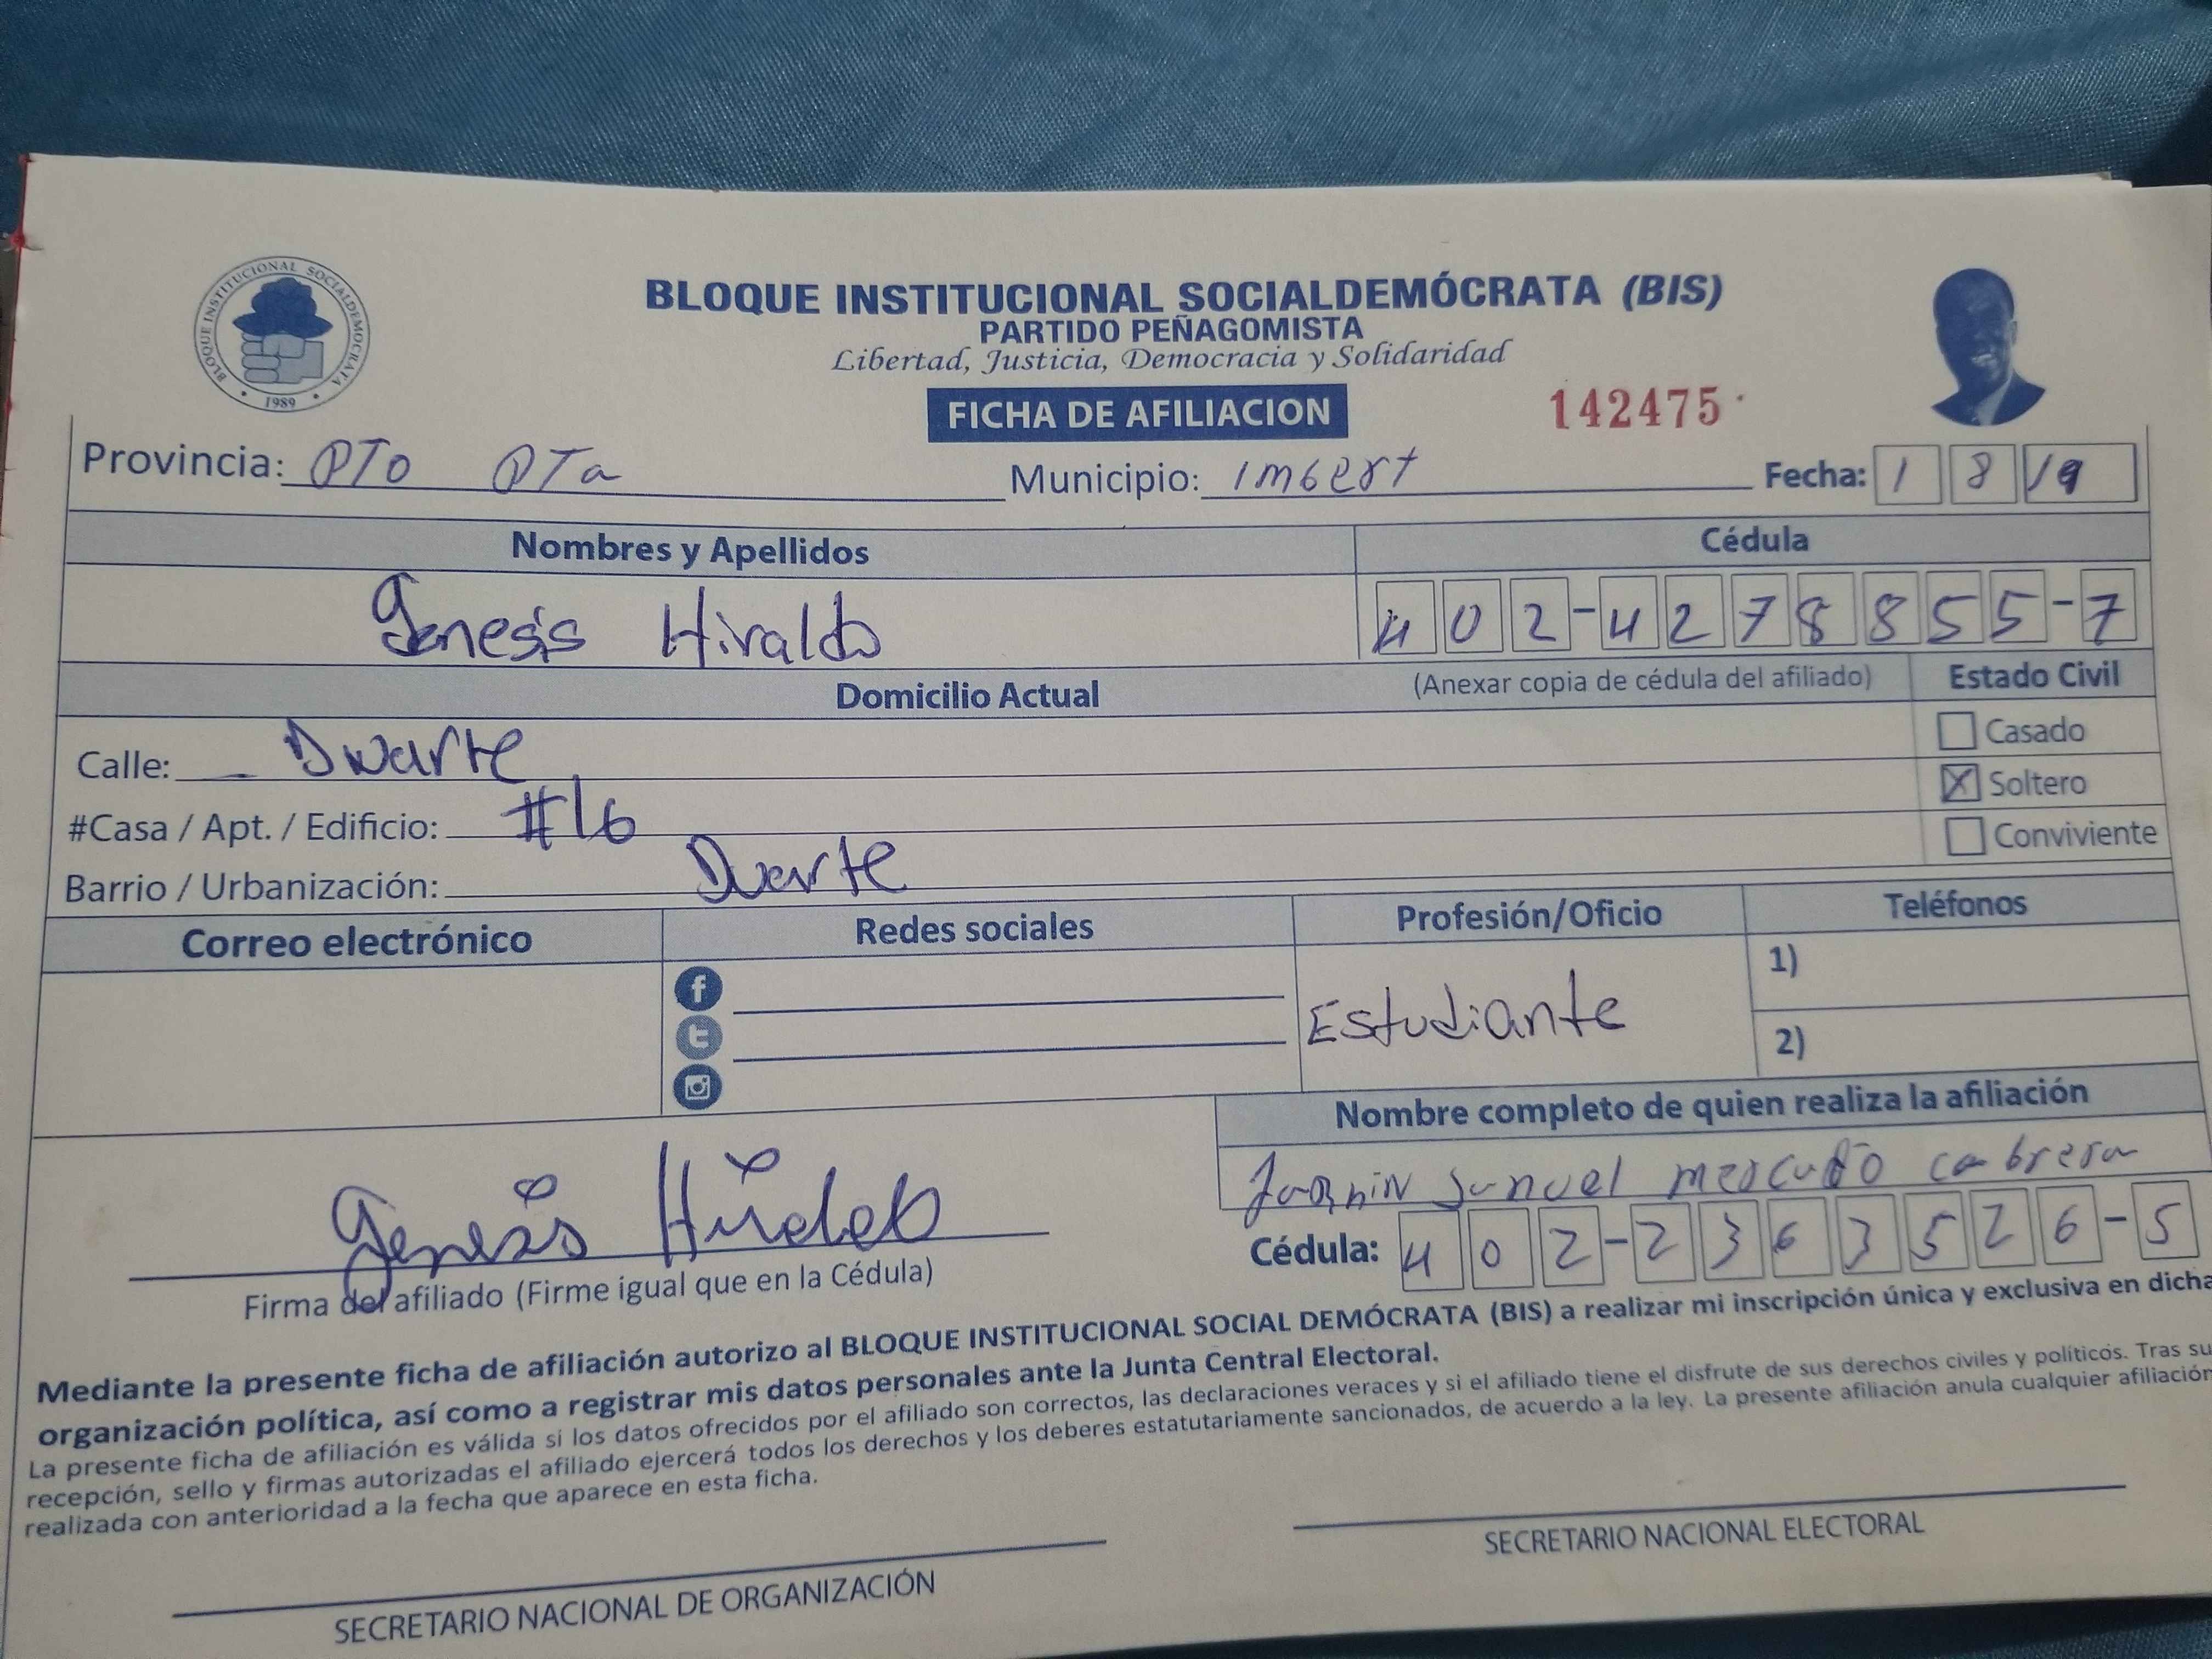 BLOQUE INSTITUCIONAL SOCIALDEMOCRATA
1989
BLOQUE INSTITUCIONAL SOCIALDEMÓCRATA (BIS)
PARTIDO PEÑAGOMISTA
Libertad, Justicia, Democracia y Solidaridad
FICHA DE AFILIACION
142475
Provincia: PTO PTa Municipio: Imbert Fecha: 1 8 19
Nombres y Apellidos Cédula
Genesis Hiraldo 402-4278855-7
Domicilio Actual (Anexar copia de cédula del afiliado) Estado Civil
Calle: Duarte Casado
#Casa / Apt. / Edificio: #16 Soltero X
Barrio / Urbanización: Duarte Conviviente
Correo electrónico Redes sociales Profesión/Oficio Teléfonos
Estudiante
1)
2)
Nombre completo de quien realiza la afiliación
mercado cabrera
Genesis Hiraldo
Cédula: 402-2363526-5
Firma del afiliado (Firme igual que en la Cédula)
Mediante la presente ficha de afiliación autorizo al BLOQUE INSTITUCIONAL SOCIAL DEMÓCRATA (BIS) a realizar mi inscripción única y exclusiva en dicha
organización política, así como a registrar mis datos personales ante la Junta Central Electoral.
La presente ficha de afiliación es válida si los datos ofrecidos por el afiliado son correctos, las declaraciones veraces y si el afiliado tiene el disfrute de sus derechos civiles y políticos. Tras su
recepción, sello y firmas autorizadas el afiliado ejercerá todos los derechos y los deberes estatutariamente sancionados, de acuerdo a la ley. La presente afiliación anula cualquier afiliación
realizada con anterioridad a la fecha que aparece en esta ficha.
SECRETARIO NACIONAL DE ORGANIZACIÓN
SECRETARIO NACIONAL ELECTORAL